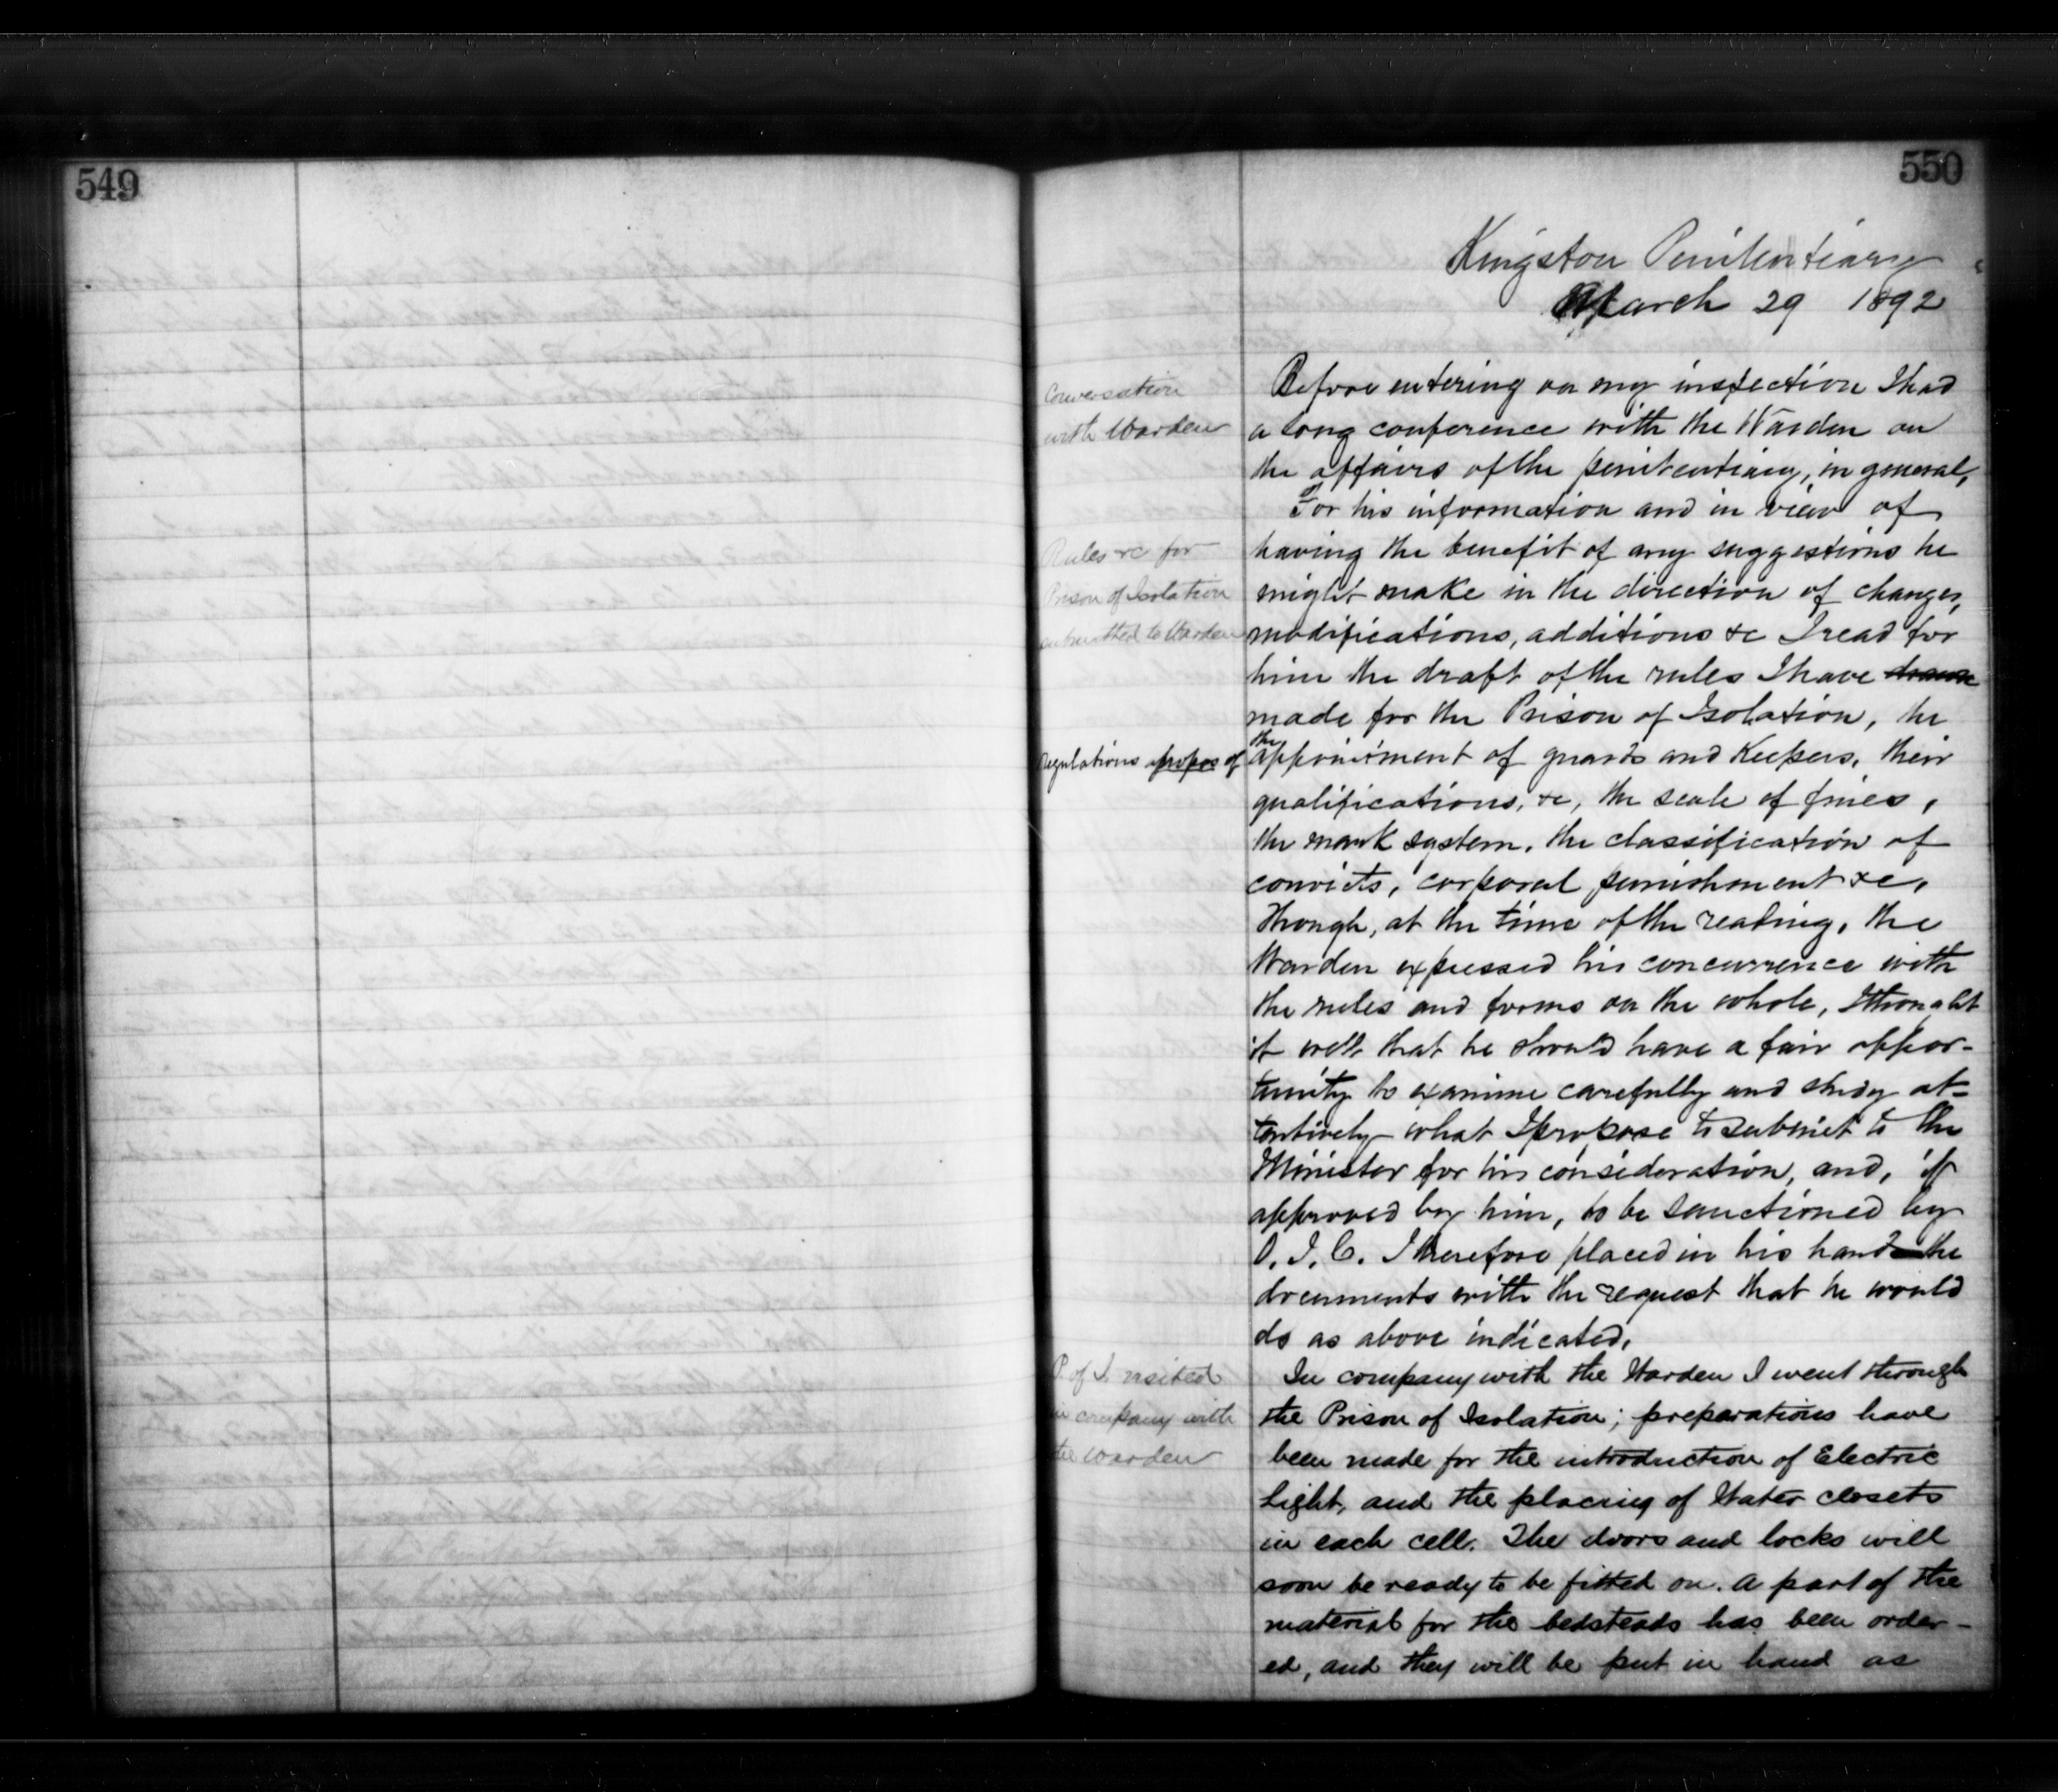 549
550
Kingston Penitentiary
March 29 1892
Conversation
with Warden
Before entering on my inspection I had
a long conference with the Warden on
the affairs of the penitentiary, in general,
For his information and in view of
having the benefit of any suggestions he
might make in the direction of changes,
modifications, additions &c I read for
him the draft of the rules I have drawn
made for the Prison of Isolation, he
Rules &c for
Prison of Isolation
submitted to Warden
Regulations apropos of
the
appointment of guards and Keepers, their
qualifications, &c, the scale of fines,
the mark system, the classification of
convicts, corporal punishment &c,
Though, at the time of the reading, the
Warden expressed his concurrence with
the rules and forms on the whole, I thought
it well that he should have a fair oppor-
tunity to examine carefully and study at=
tentively what I propose to submit to the
Minister for his consideration, and, if
approved by him, to be sanctioned by
O. I. C. I therefore placed in his hands the
documents with the request that he would
do as above indicated.
P. of I. visited
in company with
the Warden
In company with the Warden I went through
the Prison of Isolation; preparations have
been made for the introduction of Electric
Light, and the placing of Water closets
in each cell. The doors and locks will
soon be ready to be fitted on. A part of the
material for the bedsteads has been order-
ed, and they will be put in hand as